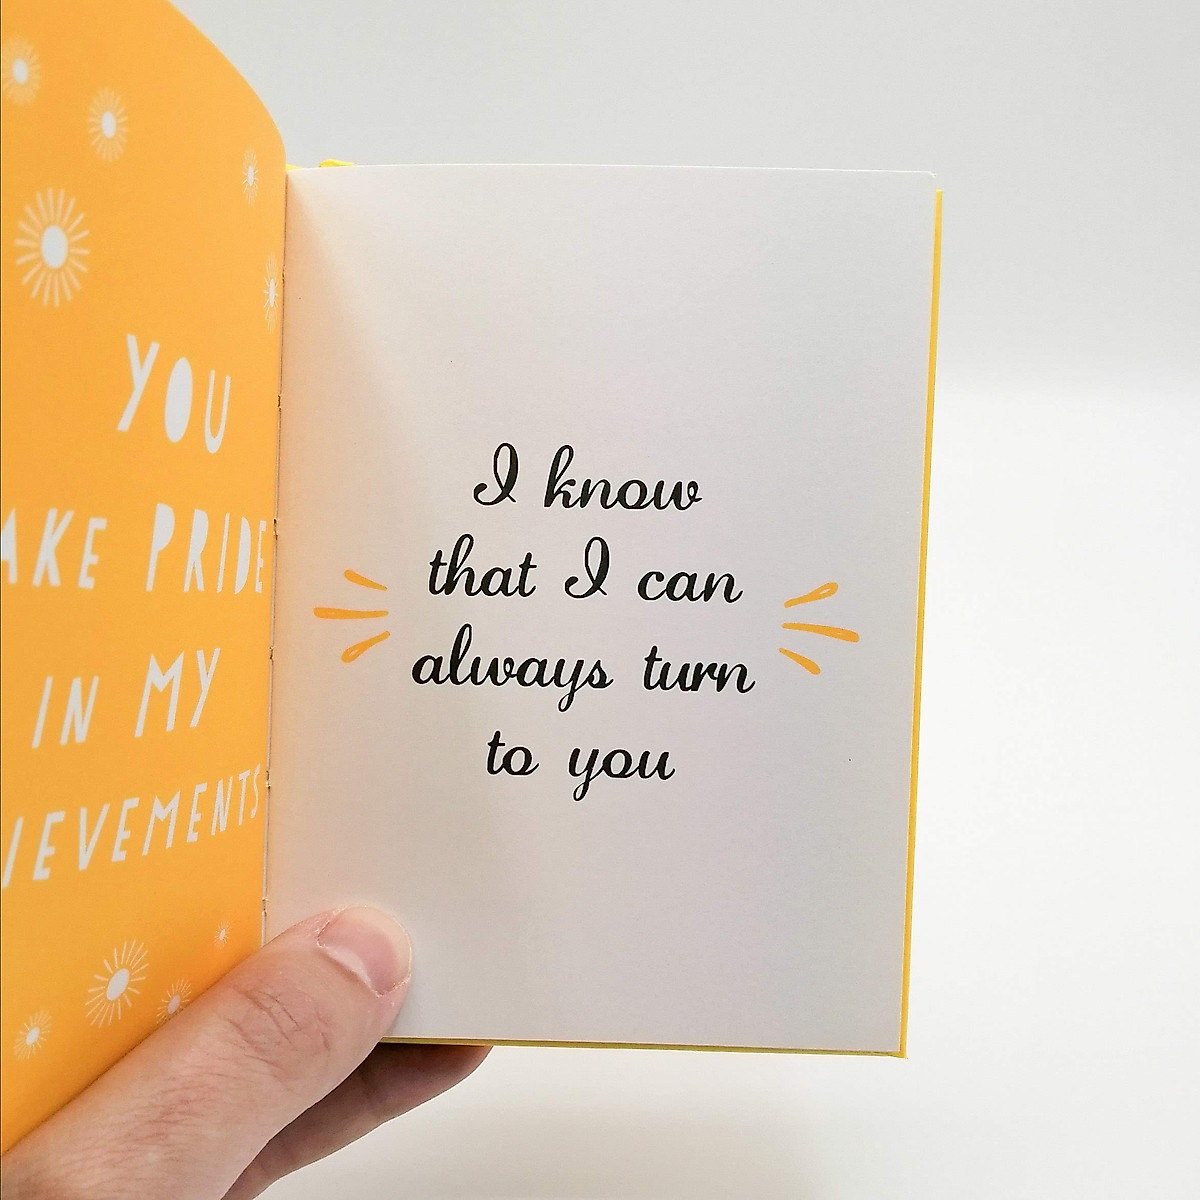 YOU
AKE PRIDE
IN MY
IEVEMENTS
I know
that I can
always turn
to you